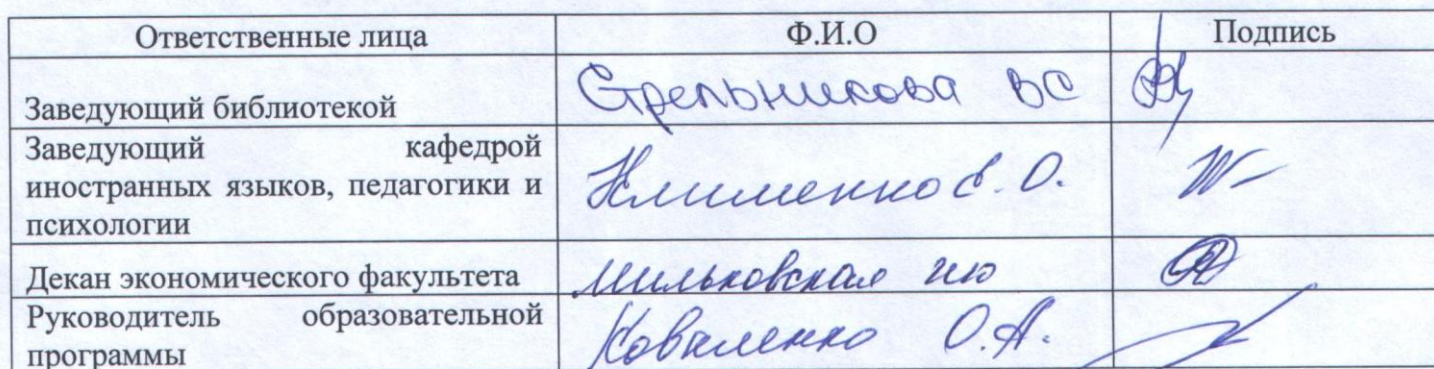 Ответственные лица Ф.И.О Подпись
Заведующий библиотекой Стрельникова ВС
Заведующий кафедрой
иностранных языков, педагогики и Клименко С.О.
психологии
Декан экономического факультета Мильковская ИЮ
Руководитель образовательной
программы Коваленко О.А.